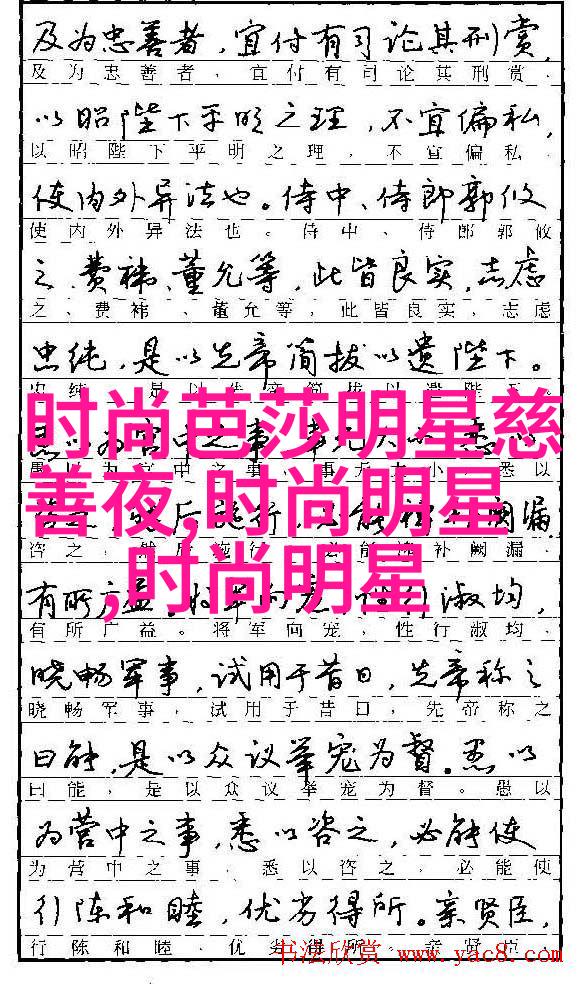 及为忠善者，宜付有司论其刑赏，
及为忠善者，宜付有司论其刑赏，
以昭陛下平明之理，不宜偏私，
以昭陛下平明之理，不宜偏私，
使内外异法也。侍中、侍郎郭攸
使内外异法也。侍中、侍郎郭攸
之、费祎、董允等，此皆良实，志虑
之、费祎、董允等，此皆良实，志虑
忠纯，是以先帝简拔以遗陛下。
时尚芭莎明星慈
善夜,时尚明星
,时尚明星
愚以为宫中之事，事无大小，悉以
阙漏，
咨之，然后施行，必能裨补阙漏，
有所广益。将军向宠，性行淑均，
有所广益。将军向宠，性行淑均，
晓畅军事，试用于昔日，先帝称之
晓畅军事，试用于昔日，先帝称之
曰能，是以众议举宠为督。愚以
曰能，是以众议举宠为督。愚以
为营中之事，悉以咨之，必能使
为营中之事，悉以咨之，必能使
行陈和睦，优劣得所。亲贤臣，
行陈和睦，优劣得所。亲贤臣，
书法欣赏 www.yac8.com